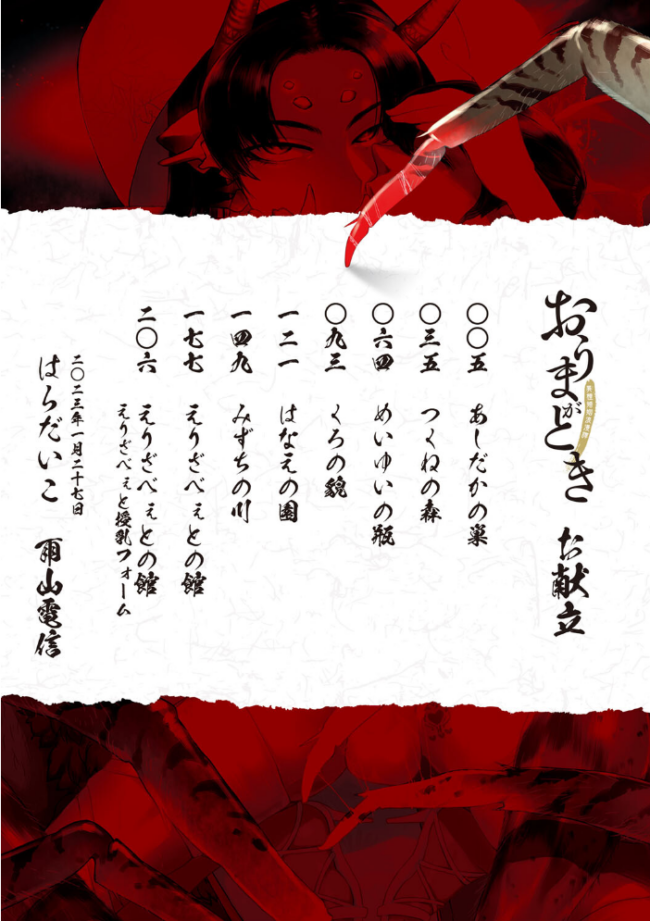 おりまがどき お献立
〇〇五 あしだかの巣
〇三五 つくねの森
〇六四 めいゆいの瓶
〇九三 くろの貌
一二一 はなえの園
一四九 みずちの川
一七七 えりざべぇとの館
二〇六 えりざべぇとの館
えりざべぇと授乳フォーム
二〇二三年一月二十七日
はらだいこ 雨山電信